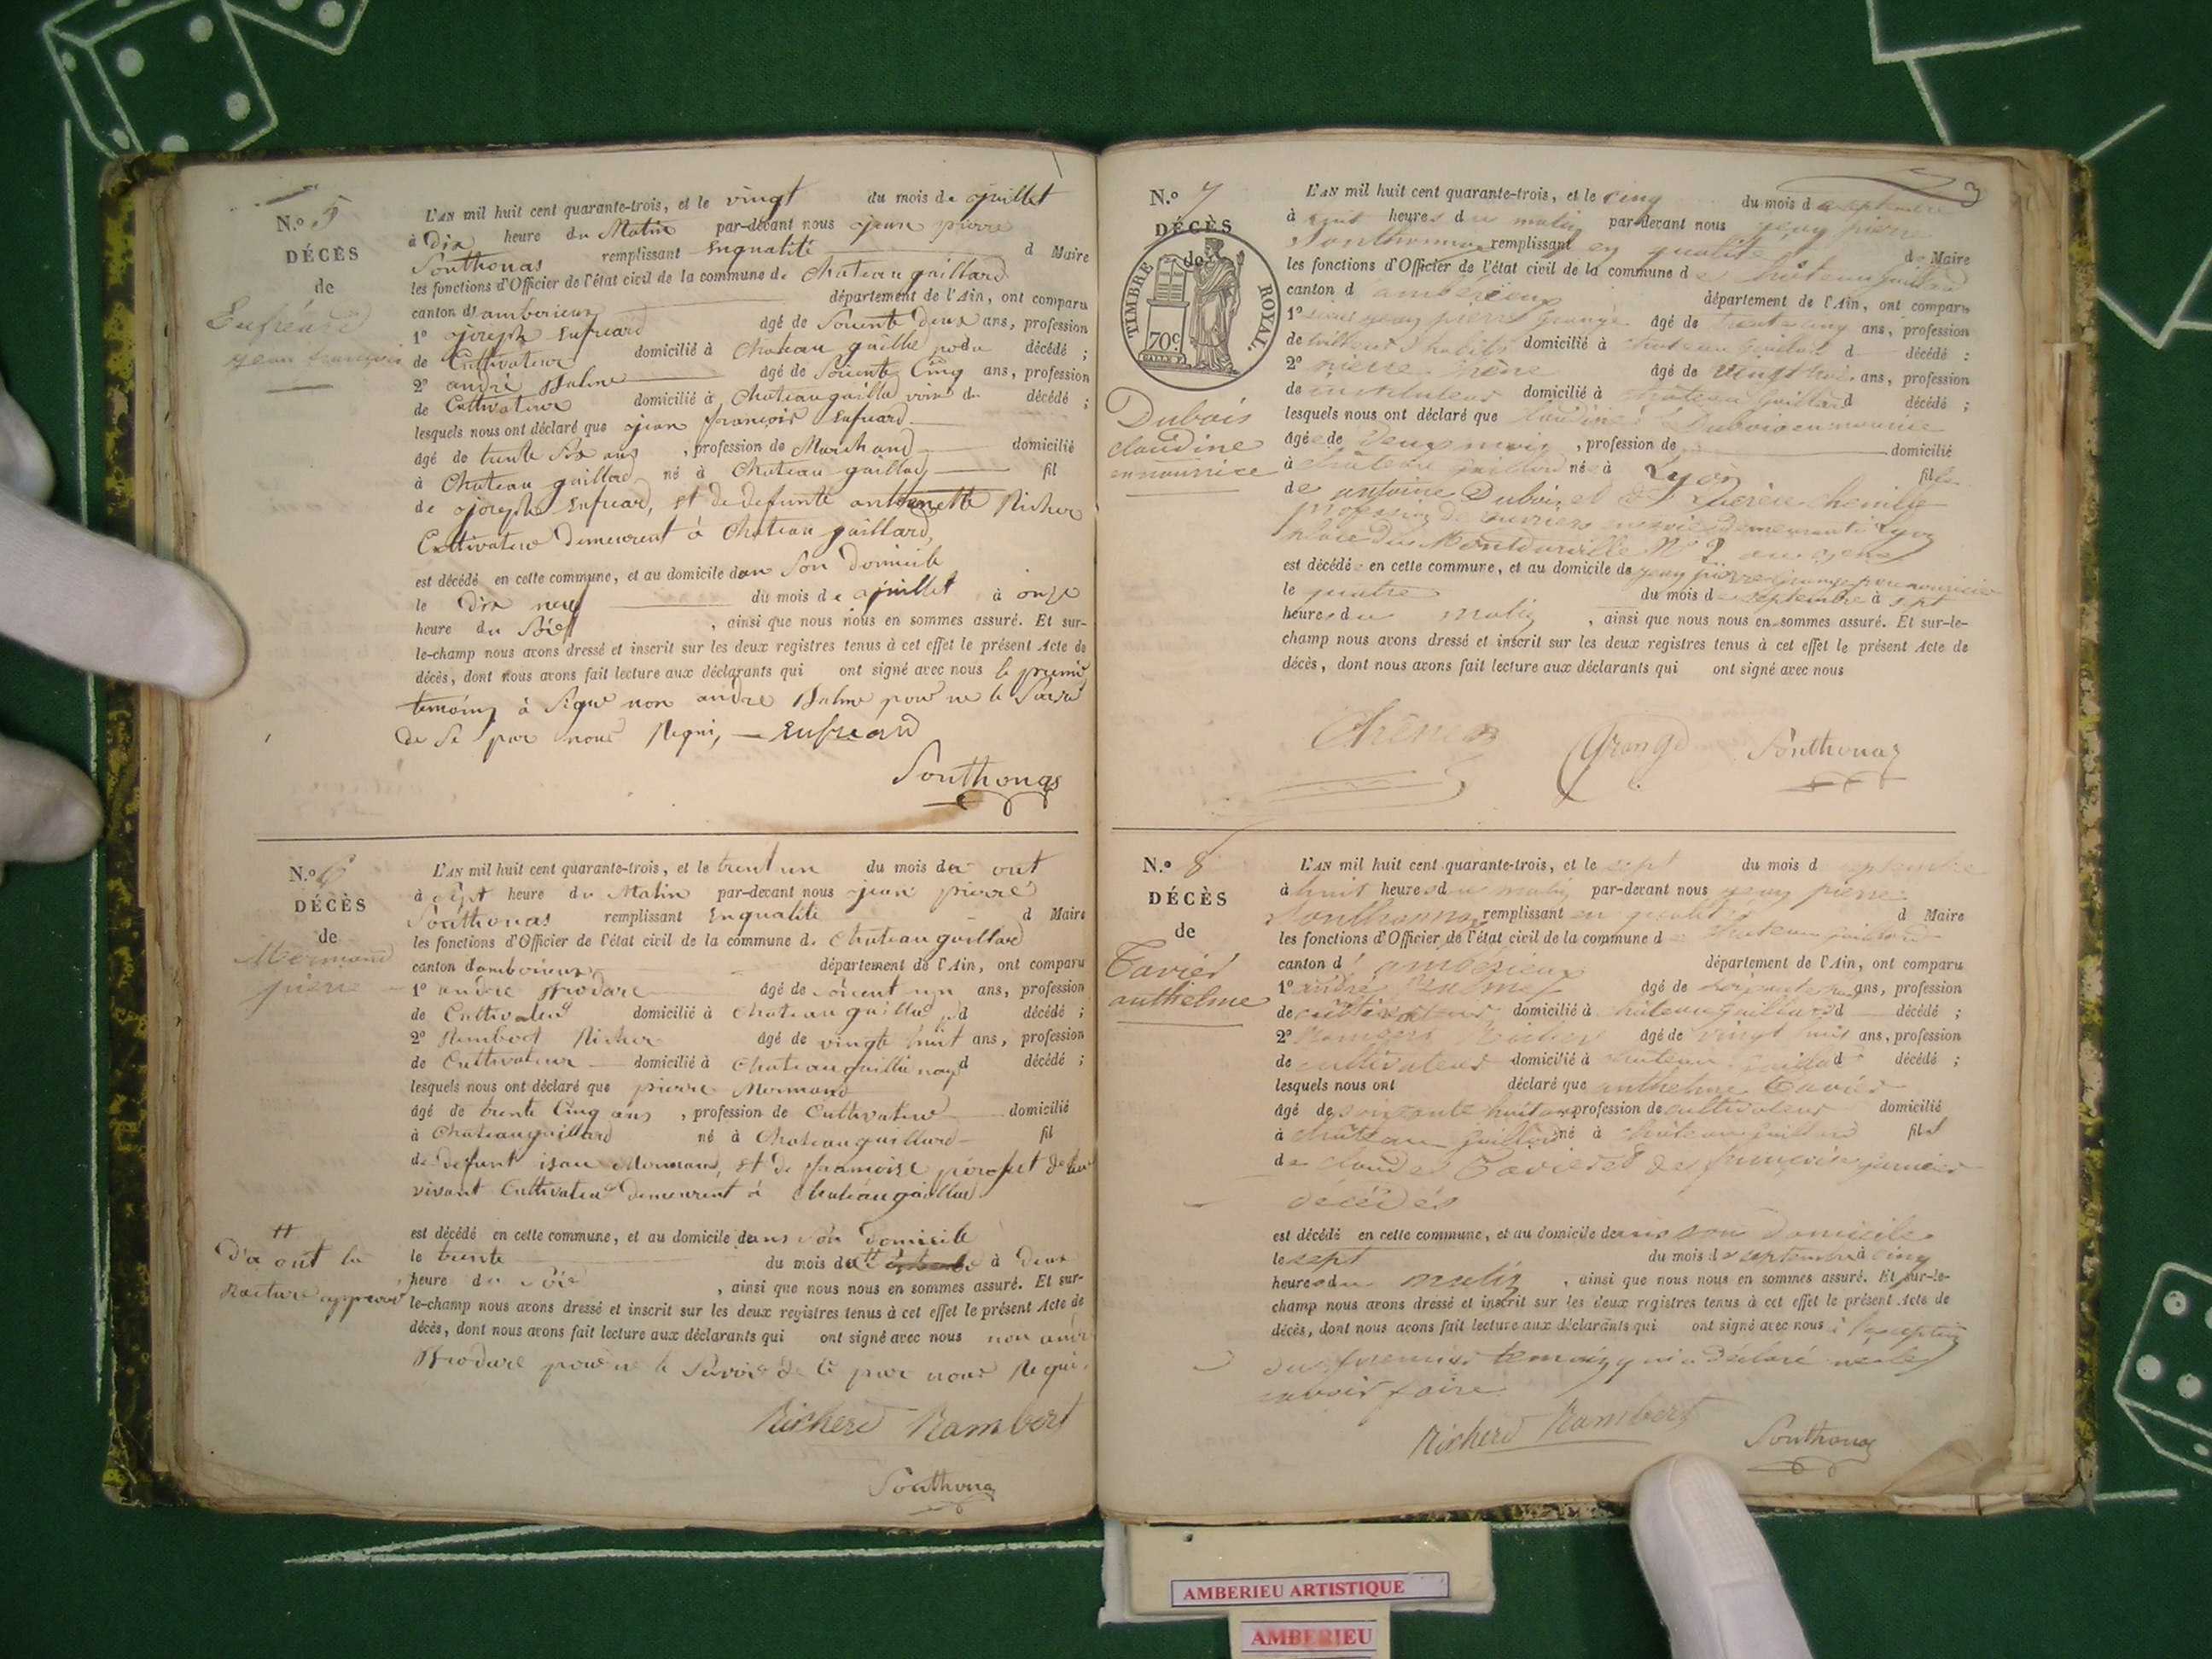 N.º 5
DÉCÈS
de
Enfréard
jean françois
L'AN mil huit cent quarante-trois, et le vingt du mois de juillet
à Dix heure du Matin par-devant nous jean pierre
Ponthonas remplissant Enqualité d Maire
les fonctions d'Officier de l'état civil de la commune de Chateaugaillard
canton d'amberieux département de l'Ain, ont comparu
1º joseph Enfreard âgé de Soixente Deux ans, profession
de Cultivateur domicilié à Chateau gaillé décédé ;
2º andré Balme âgé de Soixente Cinq ans, profession
de Cultivateur domicilié à Chateaugaillad décédé ;
lesquels nous ont déclaré que jean françois Enfreard
âgé de trente Six ans , profession de Marchand domicilié
à Chateau gaillad né à Chateau gaillad fil
de joseph Enfreard, et de defunte antoinette Richer
Cultivateur demeurent à Chateau gaillard
est décédé en cette commune, et au domicile dans Son Domicile
le dix neuf du mois de juillet à onze
heure du Soir , ainsi que nous nous en sommes assuré. Et sur-
le-champ nous avons dressé et inscrit sur les deux registres tenus à cet effet le présent Acte de
décès, dont nous avons fait lecture aux déclarants qui ont signé avec nous le premie
temoins à Signé non andré Balme pour ne le Savoir
de Ce par nous Requi, Enfreard
Ponthonas
N.º 6
DÉCÈS
de
Mermand
pierre
L'AN mil huit cent quarante-trois, et le trent un du mois de out
à Sept heure du Matin par-devant nous jean pierre
Ponthonas remplissant Enqualité d Maire
les fonctions d'Officier de l'état civil de la commune de Chateaugaillard
canton d'amberieux département de l'Ain, ont comparu
1º andré Brodare âgé de soixent un ans, profession
de Cultivateur domicilié à Chateaugaillad décédé ;
2º Rambert Richer âgé de vingte huit ans, profession
de Cultivateur domicilié à Chateaugaillad décédé ;
lesquels nous ont déclaré que pierre Mermand
âgé de trente Cinq ans , profession de Cultivateur domicilié
à Chateaugaillard né à Chateaugaillard fil
de defunt Mermand, et de francoise de leur
vivant Cultivateur demeurent à Chateaugaillad
est décédé en cette commune, et au domicile dans son Domicile
le trente du mois d à Deux
heure du Soir , ainsi que nous nous en sommes assuré. Et sur-
le-champ nous avons dressé et inscrit sur les deux registres tenus à cet effet le présent Acte de
décès, dont nous avons fait lecture aux déclarants qui ont signé avec nous non andr
Brodare pour ne le Savoir de Ce par nous Requi.
D'a out la
Rature approuvé
Richerd Rambert
Ponthonas
N.º 7
DÉCÈS
de
TIMBRE ROYAL.
70 c
Dubois
claudine
en nourrice
L'AN mil huit cent quarante-trois, et le cinq du mois de septembre
à sept heures du matin par-devant nous jean pierre
Ponthonnas remplissant en qualité de Maire
les fonctions d'Officier de l'état civil de la commune de château gaillard
canton d'ambérieux département de l'Ain, ont comparu
1º sieur jean pierre grange âgé de trente cinq ans, profession
de tailleur d'habits domicilié à château gaillard d décédé :
2º pierre chêne âgé de vingt trois ans, profession
de instituteur domicilié à château gaillard décédé ;
lesquels nous ont déclaré que claudine Dubois en nourrice
âgée de Deux mois , profession de domicilié
à château gaillard née à Lyon fille
de antoine Dubois et de chenille
profession de ouvriers en soie demeurant à Lyon
place du N° 2
est décédée en cette commune, et au domicile de jean pierre grange pere nourricier
le quatre du mois de septembre à sept
heures du matin , ainsi que nous nous en sommes assuré. Et sur-le-
champ nous avons dressé et inscrit sur les deux registres tenus à cet effet le présent Acte de
décès, dont nous avons fait lecture aux déclarants qui ont signé avec nous
Chêne Grange Ponthonas
N.º 8
DÉCÈS
de
Tavier
anthelme
L'AN mil huit cent quarante-trois, et le sept du mois d septembre
à huit heures du matin par-devant nous jean pierre
Ponthonnas remplissant en qualité d Maire
les fonctions d'Officier de l'état civil de la commune de château gaillard
canton d'ambérieux département de l'Ain, ont comparu
1º andré âgé de ans, profession
de cultivateur domicilié à château gaillard d décédé ;
2º âgé de vingt huit ans, profession
de cultivateur domicilié à château gaillard décédé ;
lesquels nous ont déclaré que anthelme Tavier
âgé de soixante huit ans profession de cultivateur domicilié
à château gaillard né à château gaillard fils
de claude Tavier et de françoise
décédés
est décédé en cette commune, et au domicile dans son domicile
le sept du mois de septembre à cinq
heures du matin , ainsi que nous nous en sommes assuré. Et sur-le-
champ nous avons dressé et inscrit sur les deux registres tenus à cet effet le présent Acte de
décès, dont nous avons fait lecture aux déclarants qui ont signé avec nous à l'exception
du premier temoin qui a déclaré ne le
savoir faire
Richerd Rambert Ponthonas
AMBERIEU ARTISTIQUE
AMBERIEU